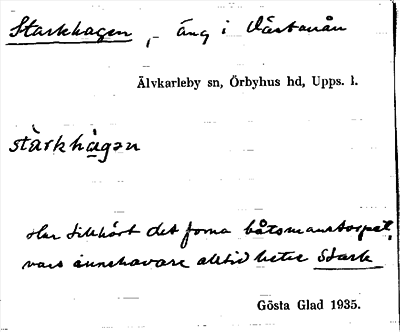 Starkhagen, - äng i Västanån
Älvkarleby sn, Örbyhus hd, Upps. l.
stàrkhàgən
Har tillhört det forna båtsmanstorpet,
vars innehavare alltid hetat Stark
Gösta Glad 1935.